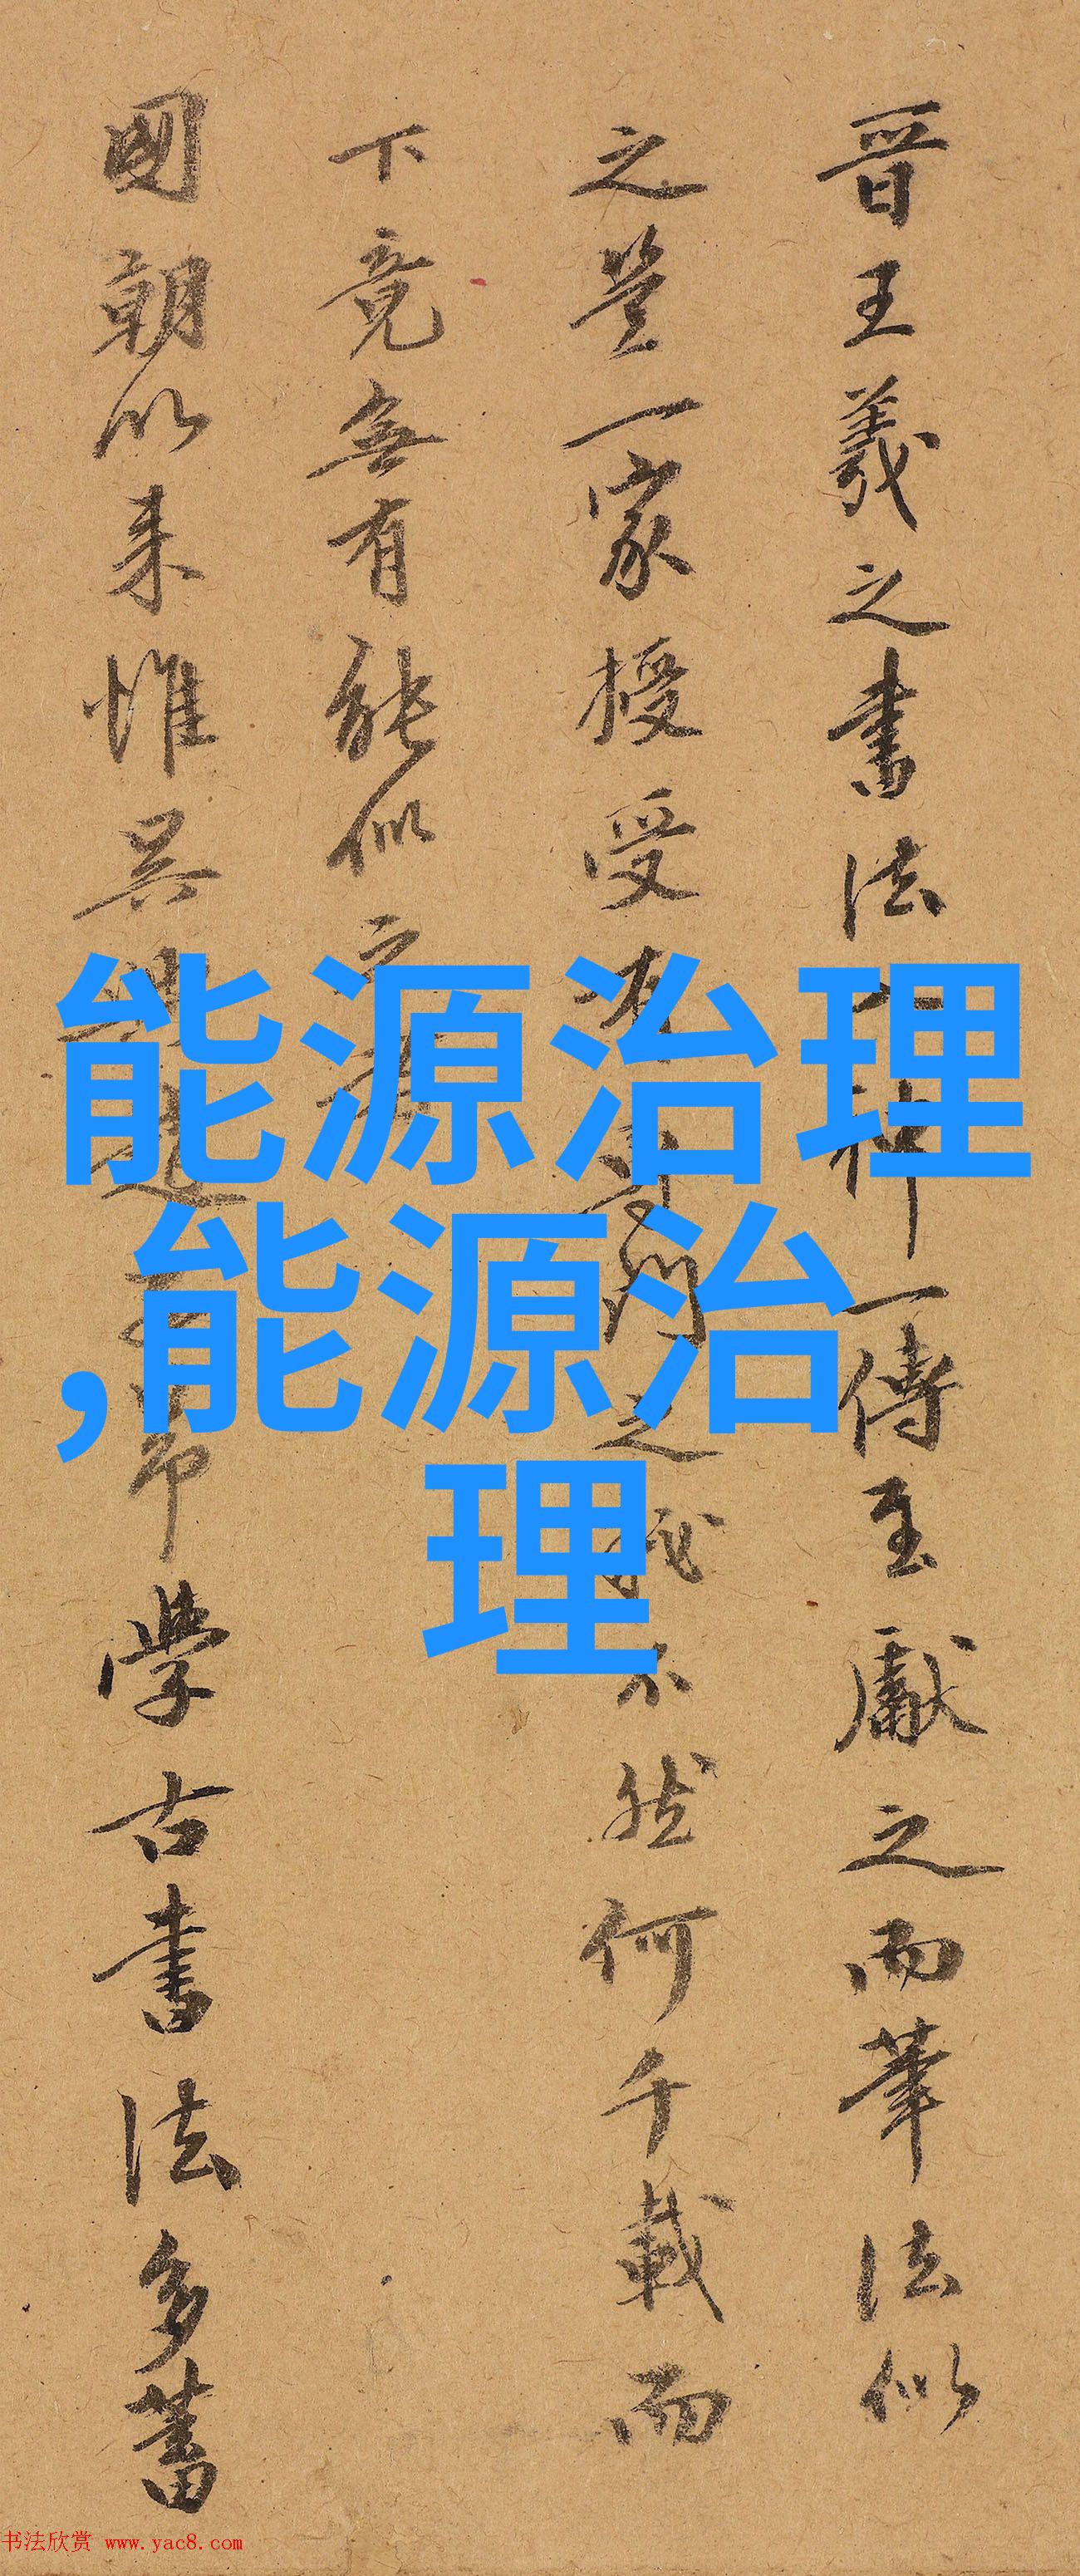 晉王羲之書法神一傳至獻之而筆法似
之豈一家授受有專門之秘不然何千載而
下竟無有能似之者
國朝以來惟吳興趙子昂學古書法多蓄
能源治理
,能源治
理
书法欣赏 www.yac8.com